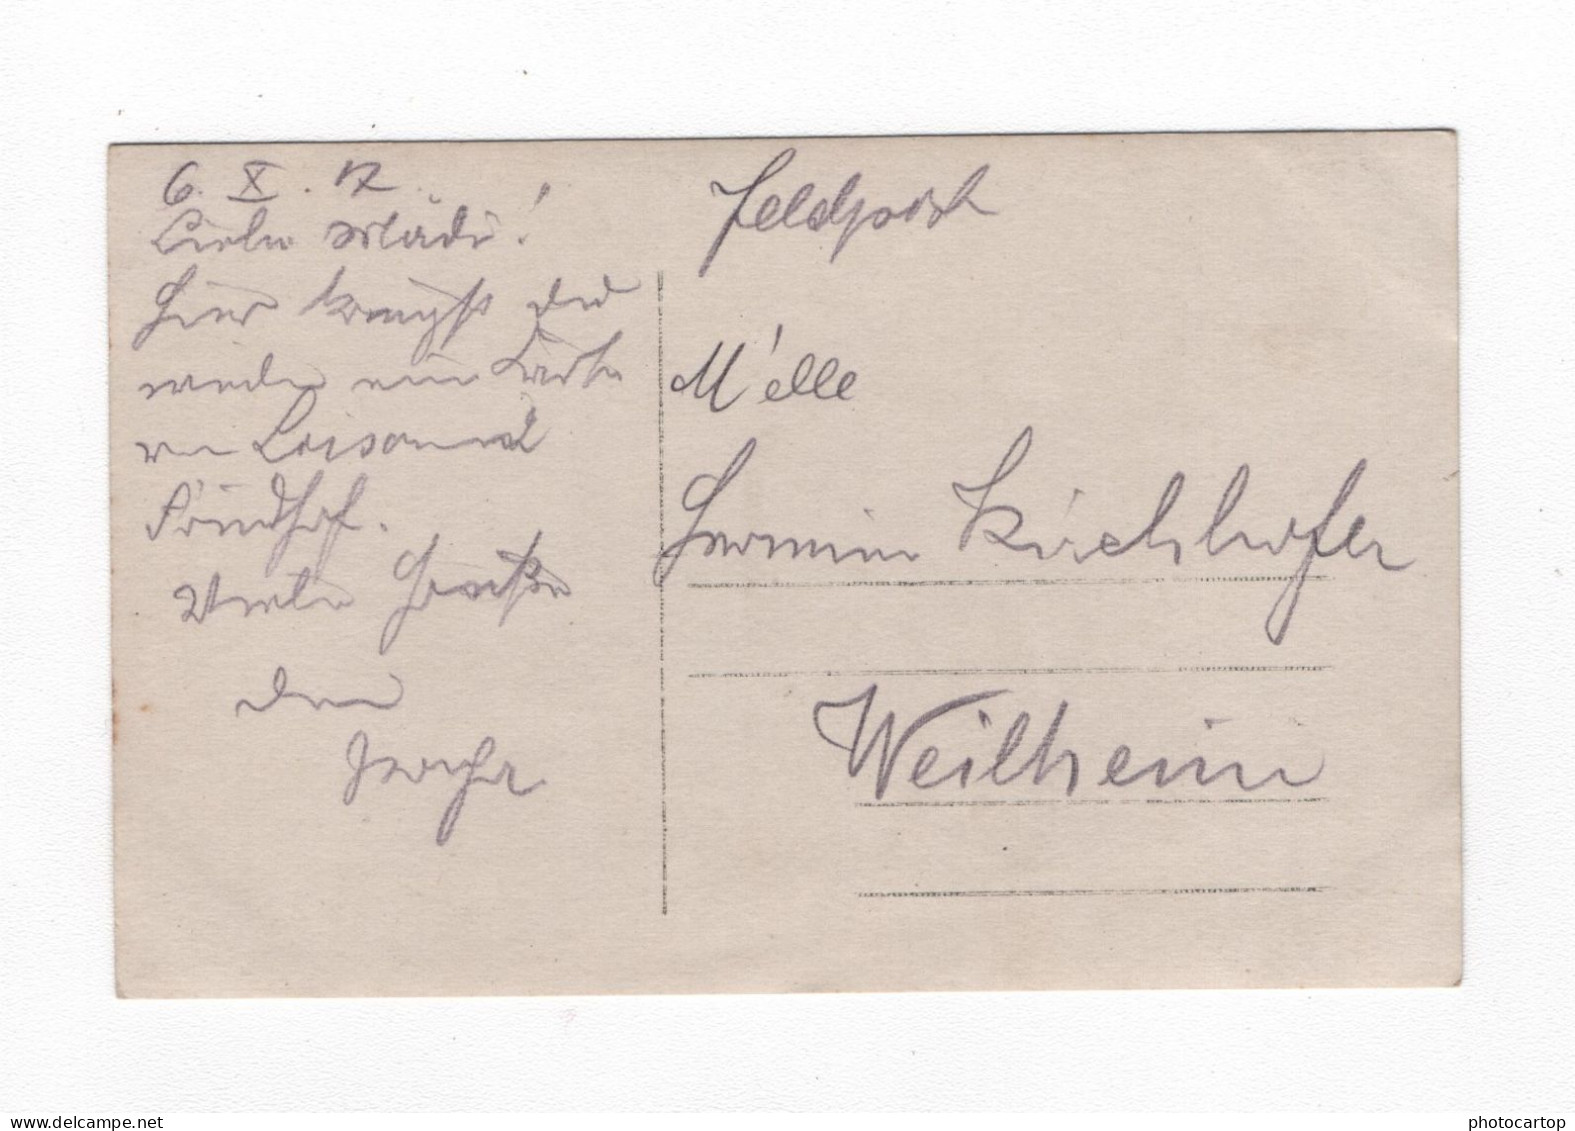 6. X. 17.
Liebe Mädi!
Hier kriegst du
wieder eine Karte
v. Loison u.
Friedhof.
Viele Grüße
dein
Feldpost
M'elle
Hermin Kirchhofer
Weilheim
www.delcampe.net
photocartop